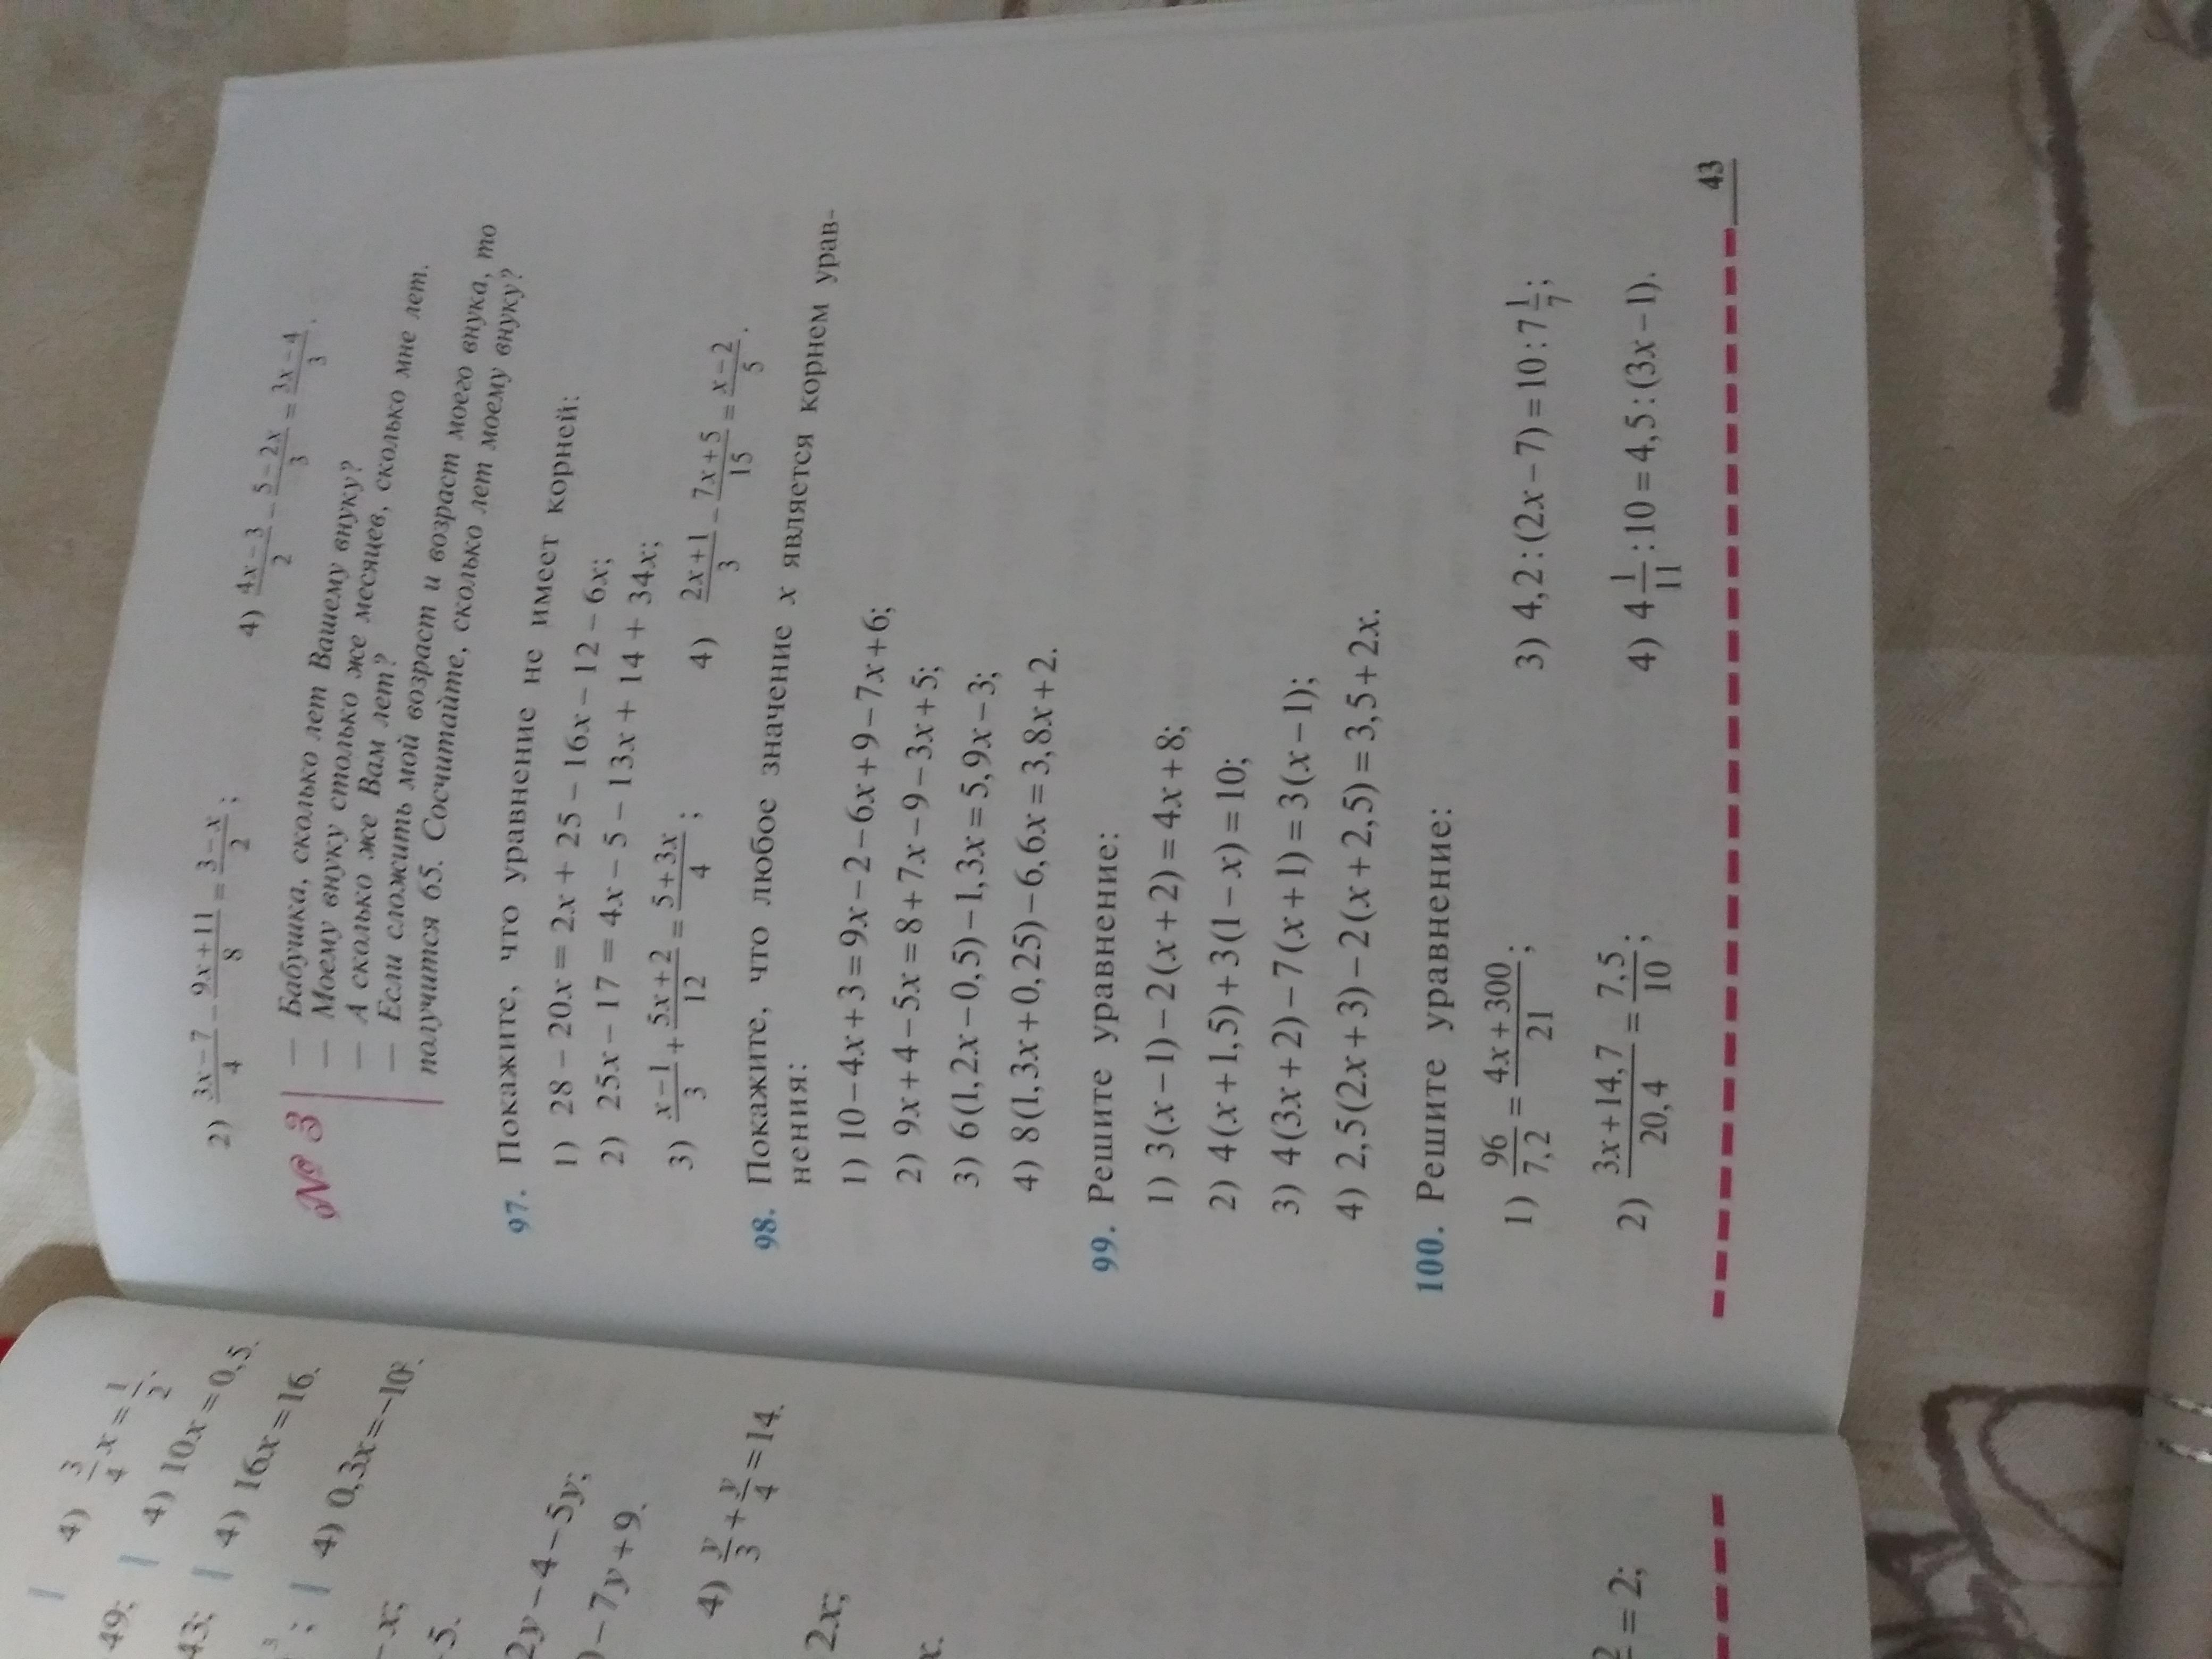 4) 3/4 x = 1/2.
49; | 4) 10x = 0,5.
43; | 4) 16x = 16.
; | 4) 0,3x = −10.
− x;
5.
2y − 4 − 5y;
− 7y + 9.
4) y/3 + y/4 = 14.
2x;
x.
= 2;
2) (3x − 7)/4 − (9x + 11)/8 = (3 − x)/2; 4) (4x − 3)/2 − (5 − 2x)/3 = (3x − 4)/3.
№ 3
— Бабушка, сколько лет Вашему внуку?
— Моему внуку столько же месяцев, сколько мне лет.
— А сколько же Вам лет?
— Если сложить мой возраст и возраст моего внука, то
получится 65. Сосчитайте, сколько лет моему внуку?
97. Покажите, что уравнение не имеет корней:
1) 28 − 20x = 2x + 25 − 16x − 12 − 6x;
2) 25x − 17 = 4x − 5 − 13x + 14 + 34x;
3) (x − 1)/3 + (5x + 2)/12 = (5 + 3x)/4; 4) (2x + 1)/3 − (7x + 5)/15 = (x − 2)/5.
98. Покажите, что любое значение x является корнем урав-
нения:
1) 10 − 4x + 3 = 9x − 2 − 6x + 9 − 7x + 6;
2) 9x + 4 − 5x = 8 + 7x − 9 − 3x + 5;
3) 6(1,2x − 0,5) − 1,3x = 5,9x − 3;
4) 8(1,3x + 0,25) − 6,6x = 3,8x + 2.
99. Решите уравнение:
1) 3(x − 1) − 2(x + 2) = 4x + 8;
2) 4(x + 1,5) + 3(1 − x) = 10;
3) 4(3x + 2) − 7(x + 1) = 3(x − 1);
4) 2,5(2x + 3) − 2(x + 2,5) = 3,5 + 2x.
100. Решите уравнение:
1) 96/7,2 = (4x + 300)/21; 3) 4,2 : (2x − 7) = 10 : 7 1/7;
2) (3x + 14,7)/20,4 = 7,5/10; 4) 4 1/11 : 10 = 4,5 : (3x − 1).
43